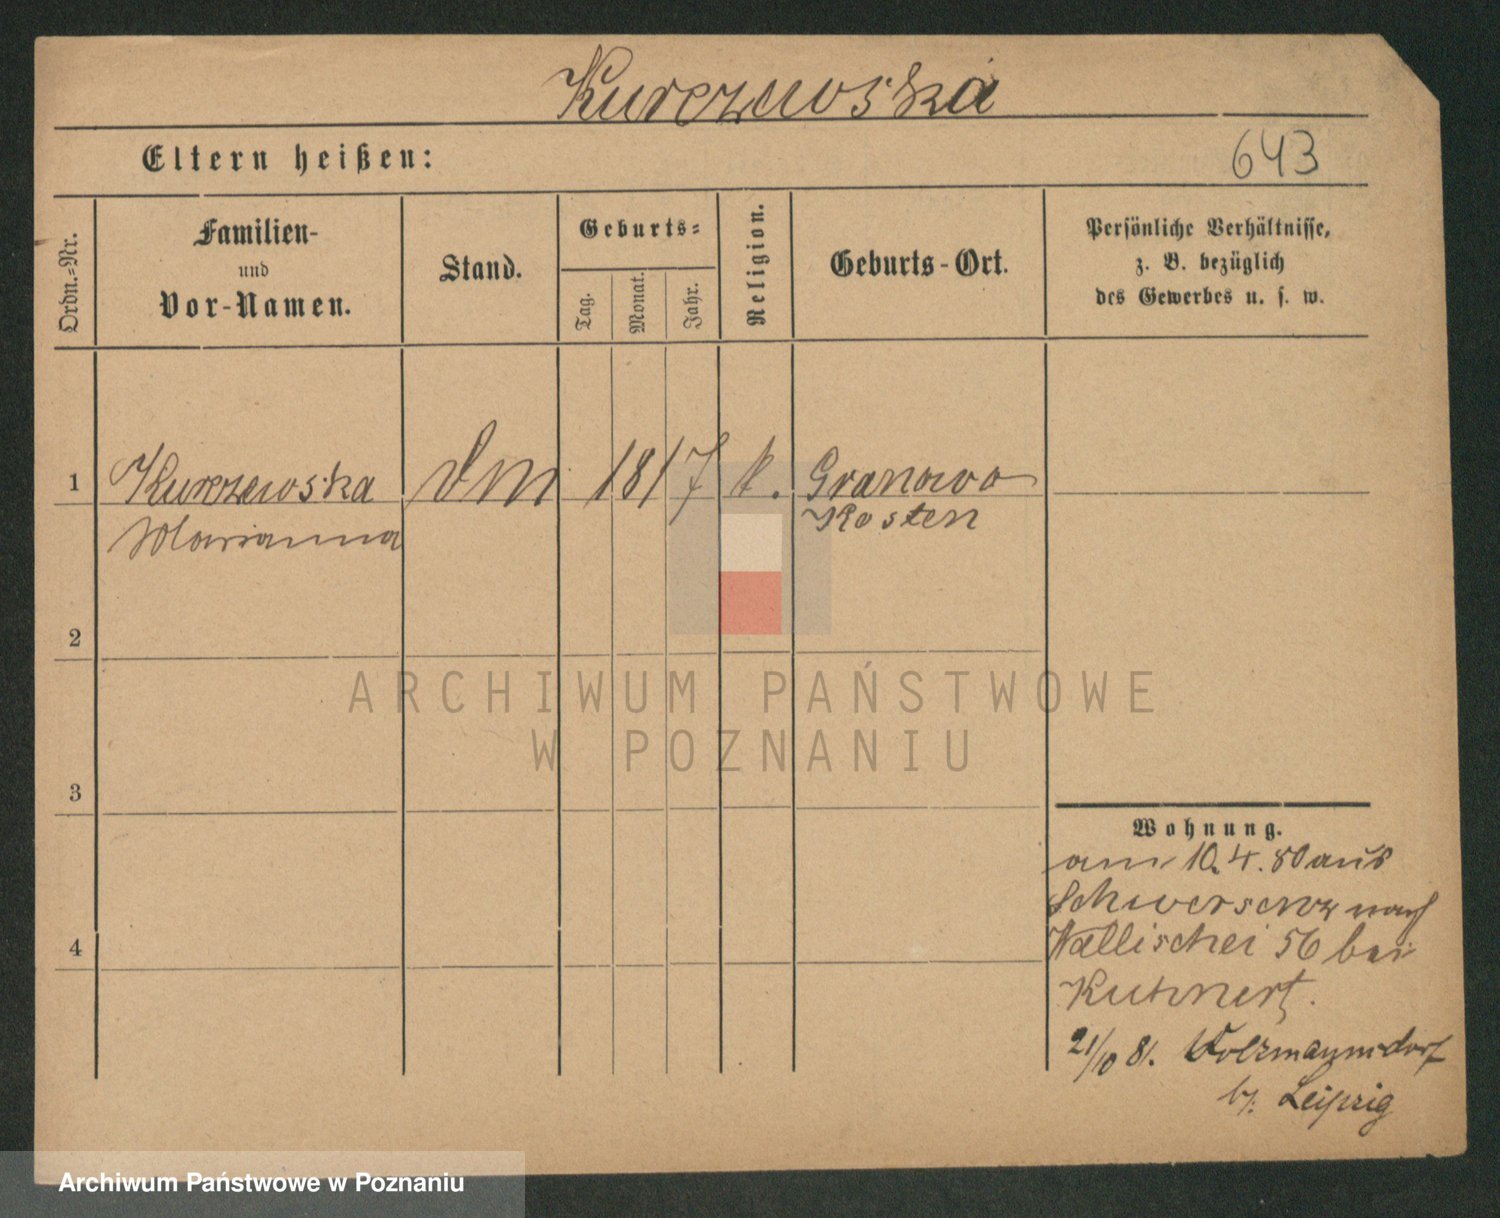 Kurczewska
Eltern heißen:
643
Ordn.-Nr.
Familien-
und
Vor-Namen.
Stand.
Geburts-
Tag.
Monat.
Jahr.
Religion.
Geburts-Ort.
Persönliche Verhältnisse,
z. B. bezüglich
des Gewerbes u. s. w.
1
Kurczewska
Marianna
1817
k.
Granowo
Kosten
2
3
4
Wohnung.
am 10.4.80 aus
Schwersenz nach
Wallischei 56 bei
Kuhnert.
21/10 81.
b/. Leipzig
ARCHIWUM PAŃSTWOWE
W POZNANIU
Archiwum Państwowe w Poznaniu